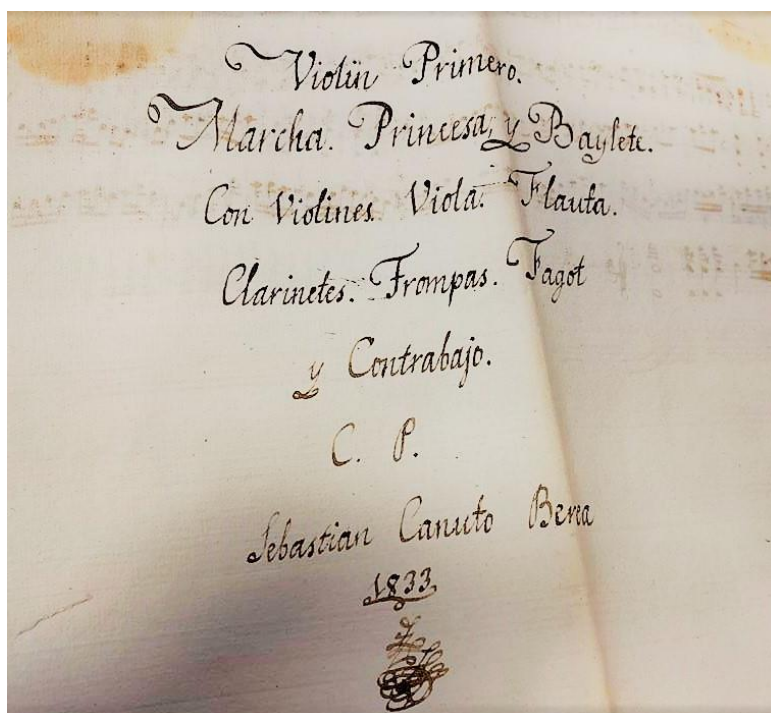 Violin Primero.
Marcha. Princesa, y Baylete.
Con Violines. Viola. Flauta.
Clarinetes. Trompas. Fagot
y Contrabajo.
C. P.
Sebastian Canuto Berea
1833